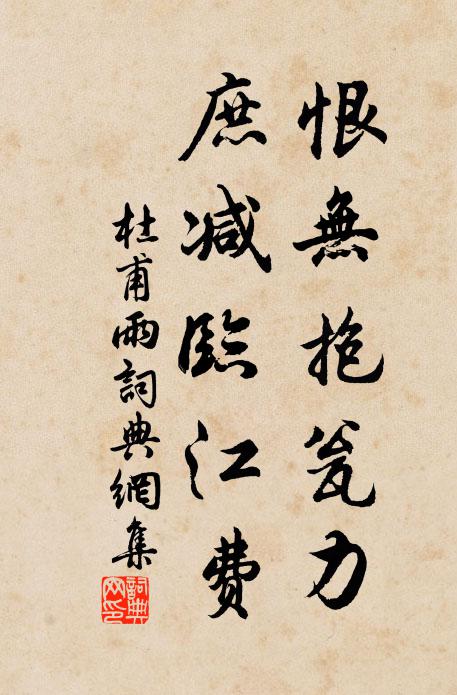 恨無抱瓮力
庶減臨江費
杜甫雨詞典網集
詞典网印